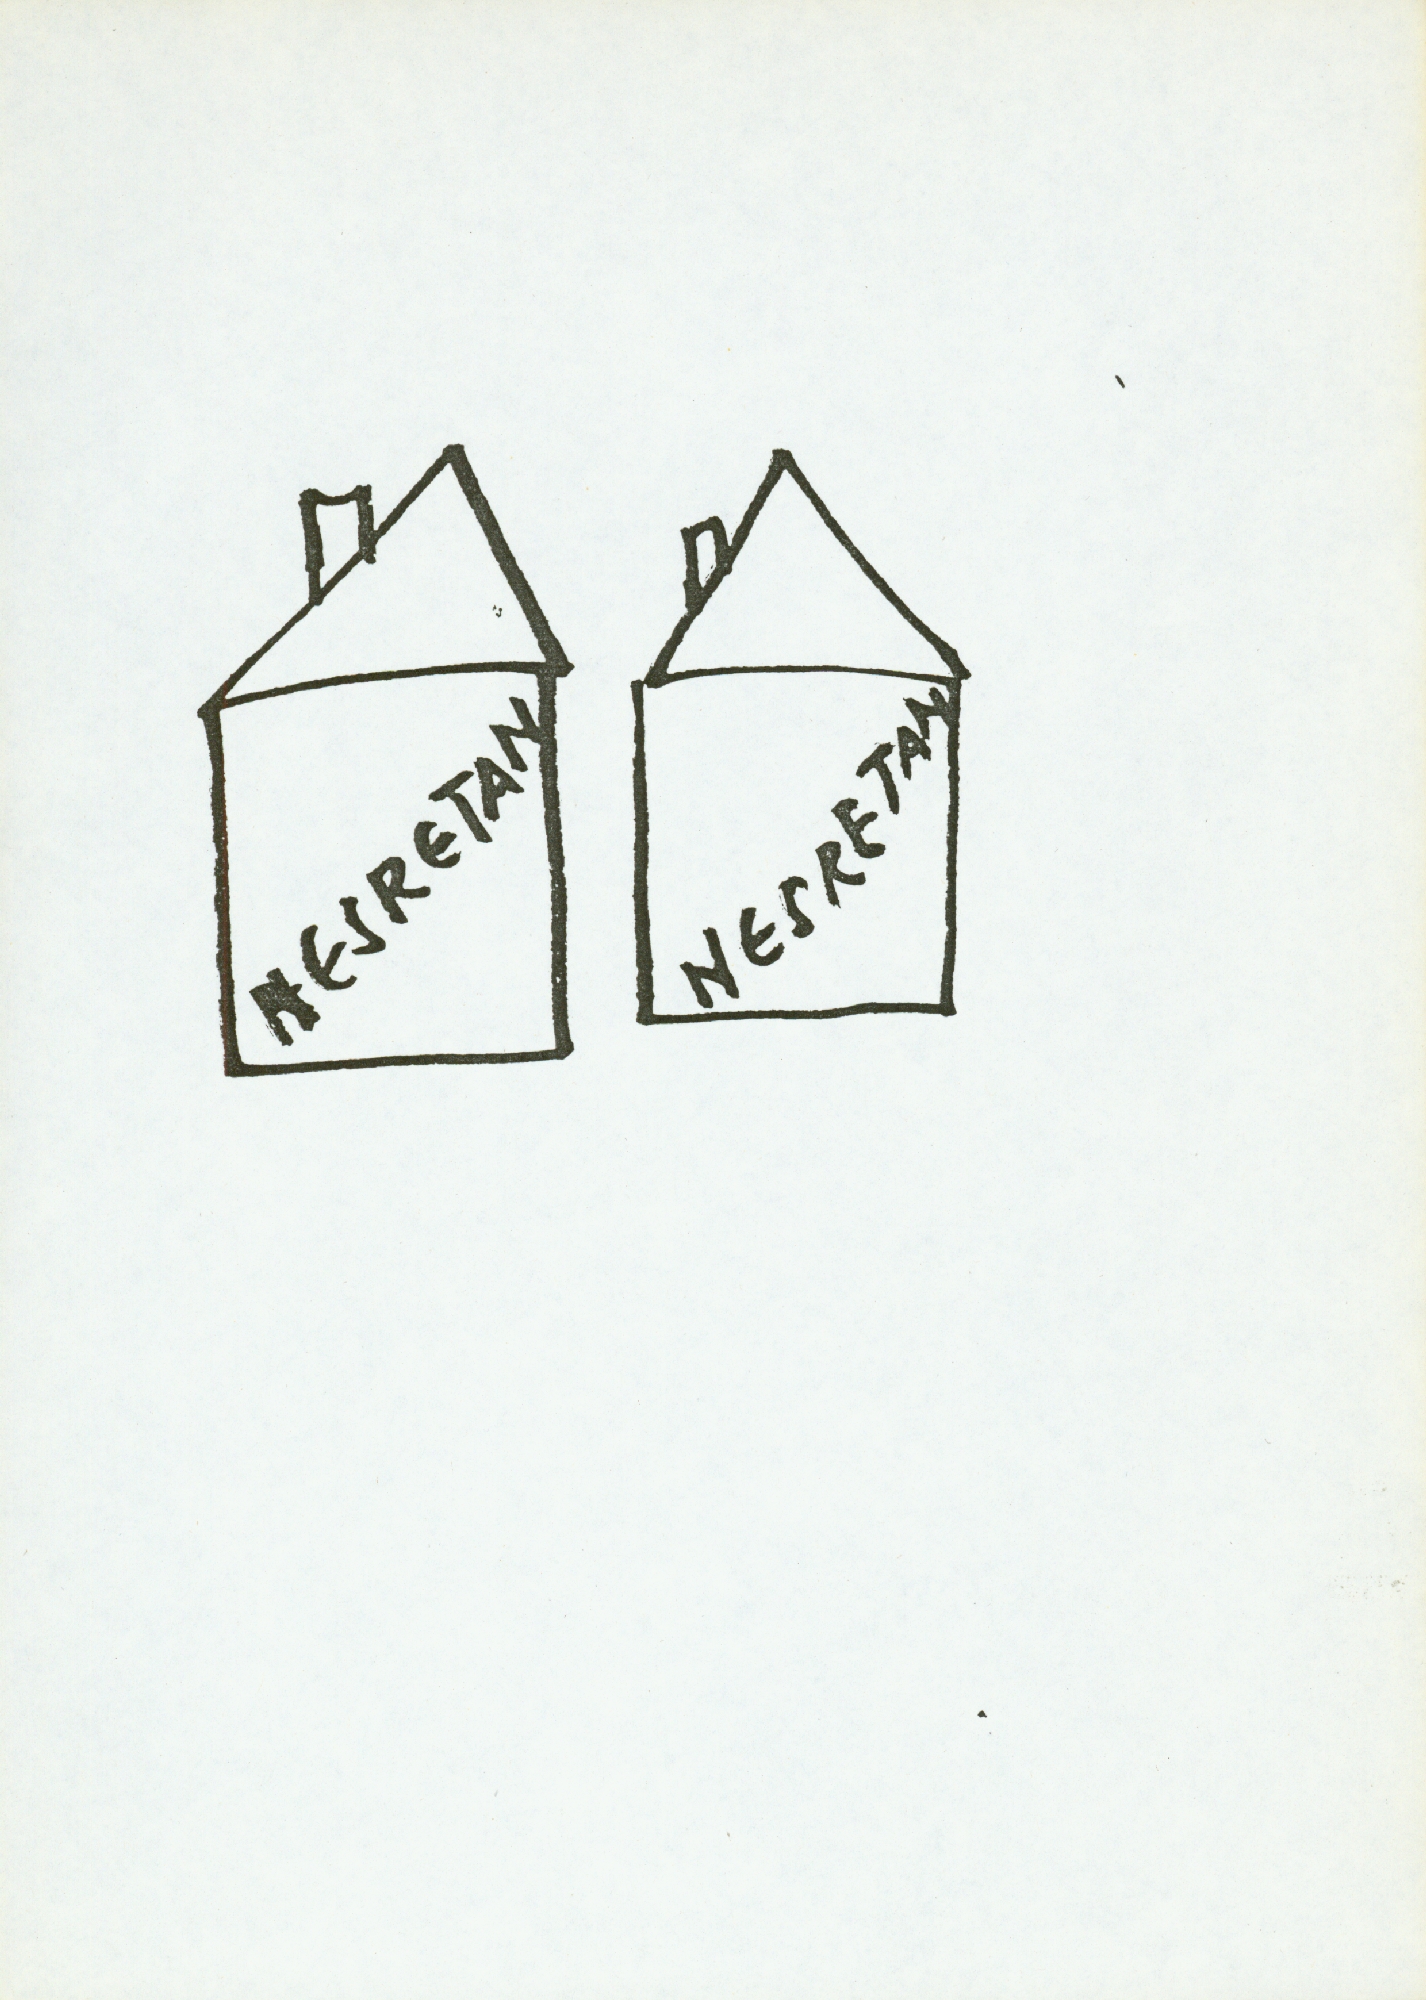 NESRETAN
NESRETAN